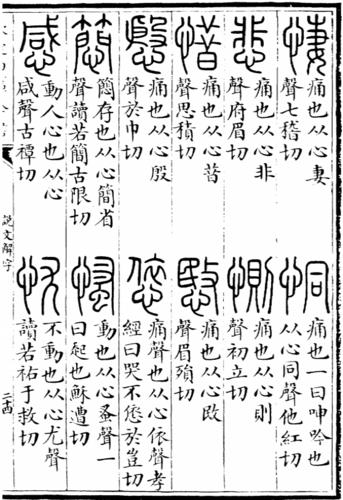 悽
痛也从心妻
聲七稽切
恫
痛也一曰呻吟也
从心同聲他紅切
悲
痛也从心非
聲府眉切
惻
痛也从心則
聲初立切
惜
痛也从心昔
聲思積切
愍
痛也从心敃
聲眉殞切
慇
痛也从心殷
聲於巾切
㥋
痛聲也从心依聲孝
經曰哭不㥋於豈切
簡存也从心簡省
聲讀若簡古限切
慅
動也从心蚤聲一
曰起也穌遭切
感
動人心也从心
咸聲古禫切
忧
不動也从心尤聲
讀若祐于救切
說文解字
二十四